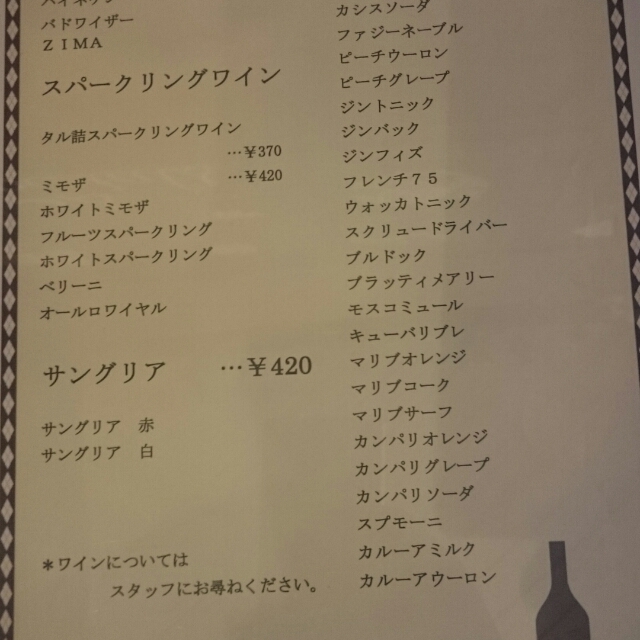 バドワイザー
ZIMA
スパークリングワイン
タル詰スパークリングワイン
…¥370
ミモザ …¥420
ホワイトミモザ
フルーツスパークリング
ホワイトスパークリング
ベリーニ
オールロワイヤル
サングリア …¥420
サングリア 赤
サングリア 白
*ワインについては
スタッフにお尋ねください。
カシスソーダ
ファジーネーブル
ピーチウーロン
ピーチグレープ
ジントニック
ジンバック
ジンフィズ
フレンチ75
ウォッカトニック
スクリュードライバー
ブルドック
ブラッティメアリー
モスコミュール
キューバリブレ
マリブオレンジ
マリブコーク
マリブサーフ
カンパリオレンジ
カンパリグレープ
カンパリソーダ
スプモーニ
カルーアミルク
カルーアウーロン